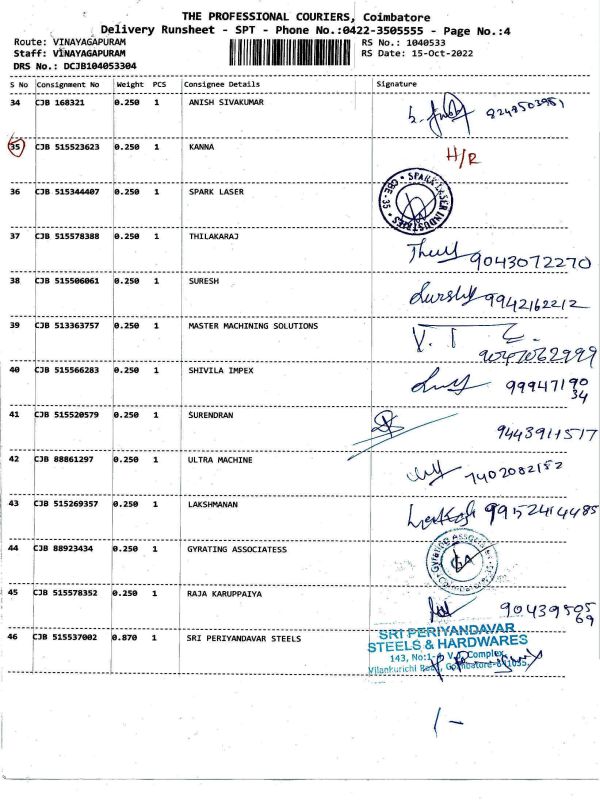 THE PROFESSIONAL COURIERS, Coimbatore
Delivery Runsheet - SPT - Phone No.:0422-3505555 - Page No.:4
Route: VINAYAGAPURAM RS No.: 1040533
Staff: VINAYAGAPURAM RS Date: 15-Oct-2022
DRS No.: DCJB104053304
S No Consignment No Weight PCS Consignee Details Signature
34 CJB 168321 0.250 1 ANISH SIVAKUMAR
35 CJB 515523623 0.250 1 KANNA H/R
36 CJB 515344407 0.250 1 SPARK LASER SPARK LASER INDUSTRIES CBE-35
37 CJB 515578388 0.250 1 THILAKARAJ 9043072270
38 CJB 515506061 0.250 1 SURESH 9942162212
39 CJB 513363757 0.250 1 MASTER MACHINING SOLUTIONS V. T
40 CJB 515566283 0.250 1 SHIVILA IMPEX 99947190
34
41 CJB 515520579 0.250 1 SURENDRAN 9443911517
42 CJB 88861297 0.250 1 ULTRA MACHINE 7402082152
43 CJB 515269357 0.250 1 LAKSHMANAN 9952414485
44 CJB 88923434 0.250 1 GYRATING ASSOCIATESS Gyrating Associates GA
45 CJB 515578352 0.250 1 RAJA KARUPPAIYA 90439505
69
46 CJB 515537002 0.870 1 SRI PERIYANDAVAR STEELS SRI PERIYANDAVAR
STEELS & HARDWARES
143, No:1- Complex,
Vilankurichi Road, Coimbatore-641035.
/-